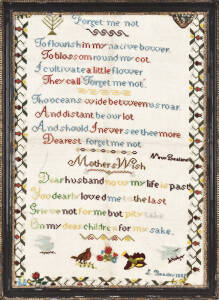 Forget me not
To flourish in my native bower
To blossom round my cot
I cultivate a little flower
They call Forget me not
Tho oceans wide between us roar
And distant be our lot
And should I never see thee more
Dearest forget me not
New Zealand
Mothers Wish
Dear husband now my life is past
You dearly loved me to the last
Grieve not for me but pity take
On my dear children for my sake